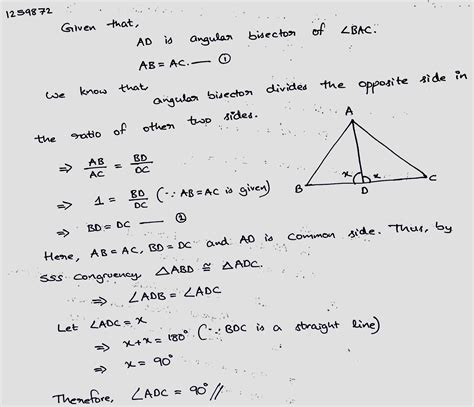 1259872
Given that,
AD is angular bisector of ∠BAC.
AB = AC. — ①
We know that
angular bisector divides the opposite side in
the ratio of other two sides.
⇒ AB/AC = BD/DC
⇒ 1 = BD/DC (∵ AB = AC is given)
⇒ BD = DC — ②
A
x x
B D C
Here, AB = AC, BD = DC and AD is common side. Thus, by
SSS congruency △ABD ≅ △ADC.
⇒ ∠ADB = ∠ADC
Let ∠ADC = x
⇒ x + x = 180° (∵ BDC is a straight line)
⇒ x = 90°
Therefore, ∠ADC = 90° //